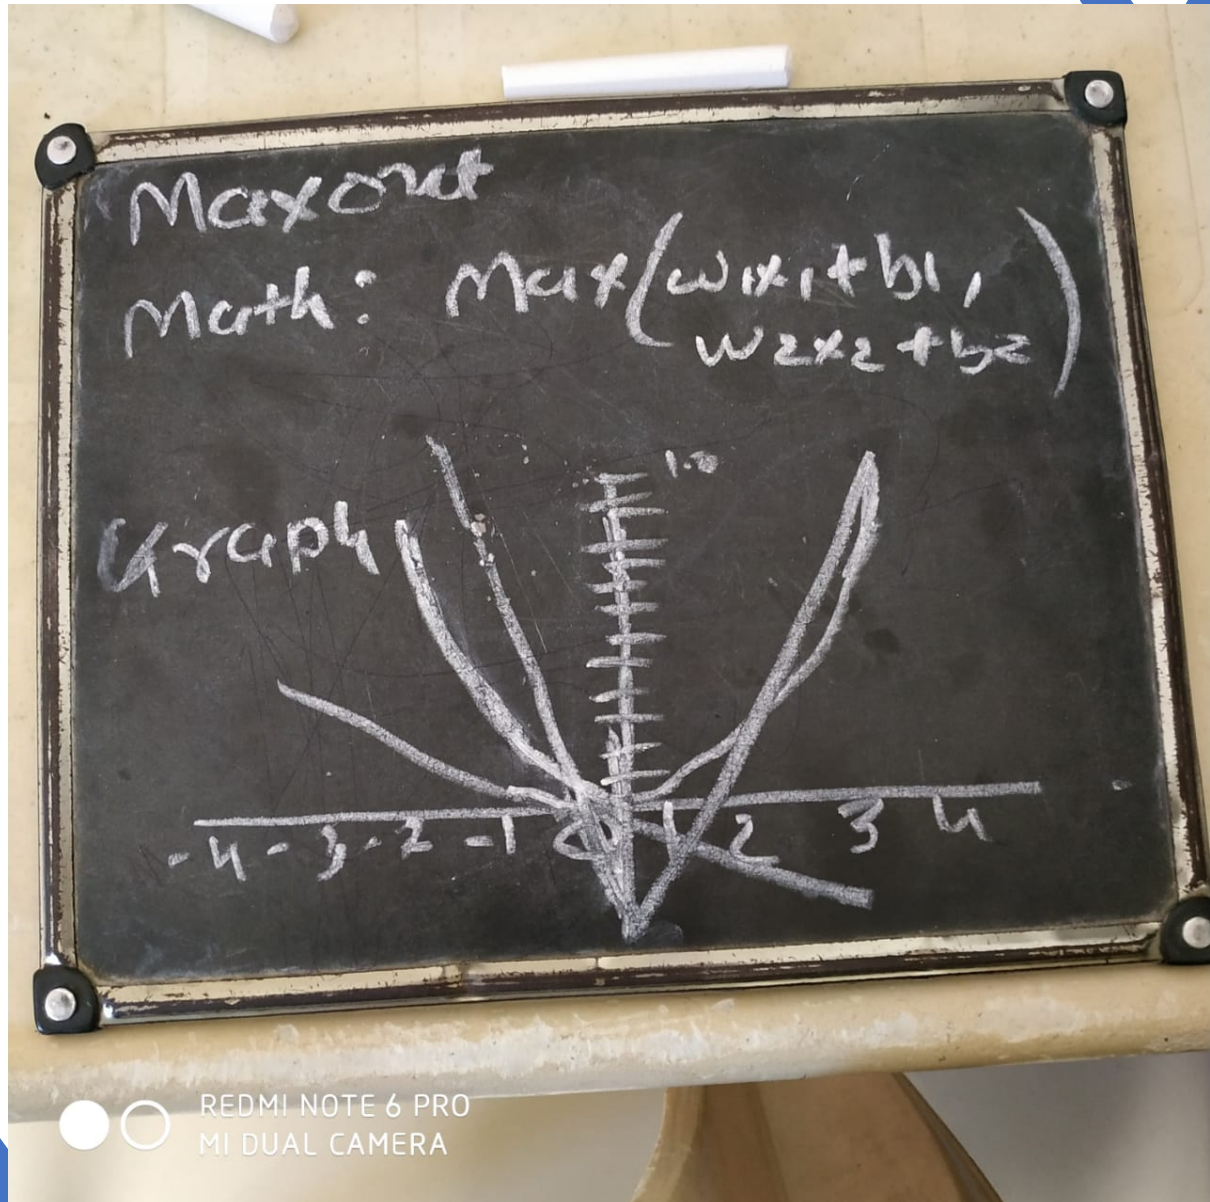 Maxout
Math: Max(w1x1+b1,
w2x2+b2)
Graph
1.0
-4 -3 -2 -1 0 1 2 3 4
REDMI NOTE 6 PRO
MI DUAL CAMERA